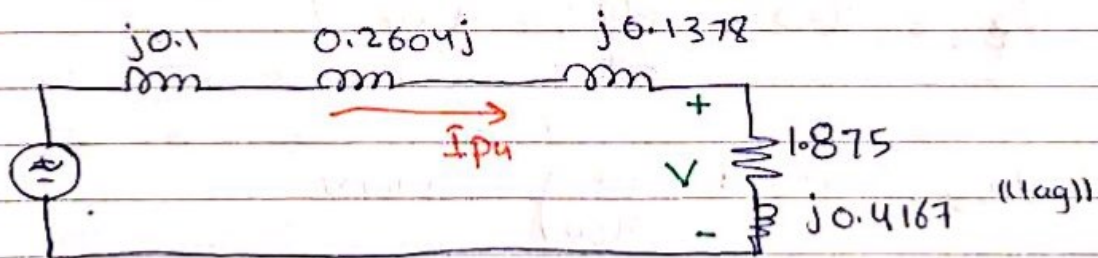 j0.1 0.2604j j0.1378
Ipu
+
1.875
V
j0.4167 ((lag))
-